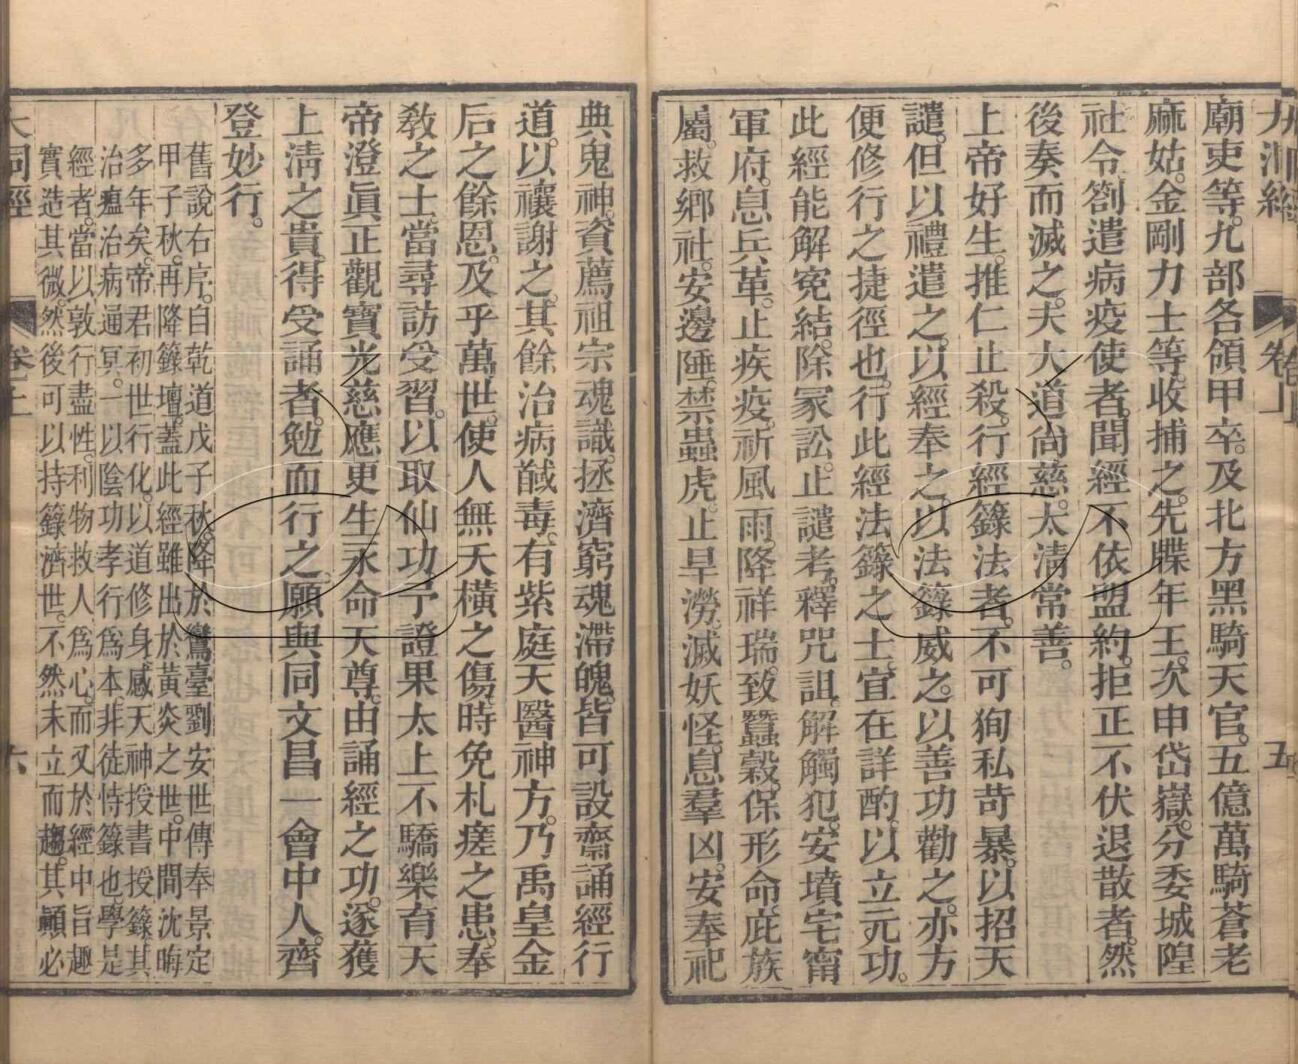 大洞經 卷上 五
廟吏等。九部各領甲卒。及北方黑騎天官。五億萬騎。蒼老
麻姑。金剛力士等。收捕之。先牒年王。次申岱嶽。分委城隍
社令。劄遣病疫使者。聞經不依盟約。拒正不伏退散者。然
後奏而滅之。夫大道尚慈。太清常善。
上帝好生。推仁止殺。行經籙法者。不可狥私苛暴。以招天
譴。但以禮遣之。以經奉之。以法籙威之。以善功勸之。亦方
便修行之捷徑也。行此經法籙之士。宜在詳酌。以立元功。
此經能解寃結。除冢訟。止譴考。釋咒詛。解觸犯。安墳宅。甯
軍府。息兵革。止疾疫。祈風雨。降祥瑞。致蠶穀。保形命。庇族
屬。救鄉社。安邊陲。禁蟲虎。止旱澇。滅妖怪。息羣凶。安奉祀
典鬼神。資薦祖宗魂識。拯濟窮魂滯魄。皆可設齋誦經行
道。以禳謝之。其餘治病馘毒。有紫庭天醫神方。乃禹皇金
后之餘恩。及乎萬世。使人無夭橫之傷。時免札瘥之患。奉
敎之士。當尋訪受習。以取仙功。予證果太上不驕樂育天
帝澄眞正觀寶光慈應更生永命天尊。由誦經之功。遂獲
上淸之貴。得受誦者。勉而行之。願與同文昌一會中人。齊
登妙行。
舊說右序。自乾道戊子秋。降於鸞臺。劉安世傳奉。景定
甲子秋。再降籙壇。蓋此經雖出於黃炎之世。中間沈晦
多年矣。帝君初世行化。以道修身。感天神授書授籙。其
治瘟治病通冥。一以陰功孝行爲本。非徒恃籙也。學是
經者。當以敦行盡性。利物救人爲心。而又於經中旨趣
實造其微。然後可以持籙濟世。不然未立而趨。其顚必
大洞經 卷上 六